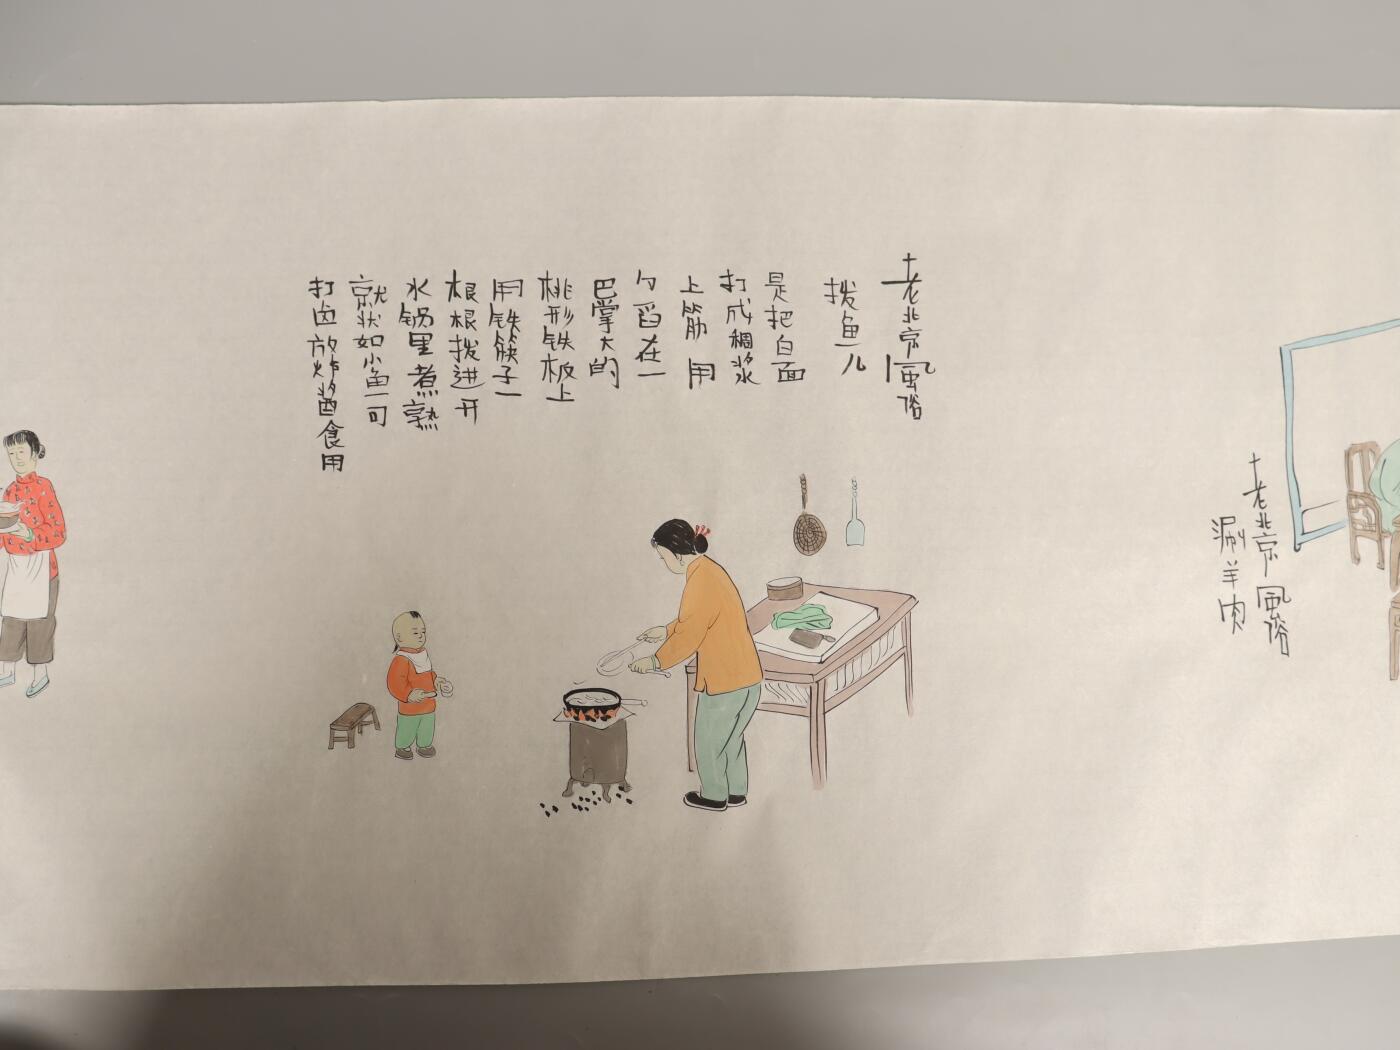 老北京風俗
涮羊肉
老北京風俗
拨鱼儿
是把白面
打成稠浆
上筋用
勺舀在一
巴掌大的
桃形铁板上
用铁筷子一
根根拨进开
水锅里煮熟
就状如小鱼可
打卤放炸酱食用